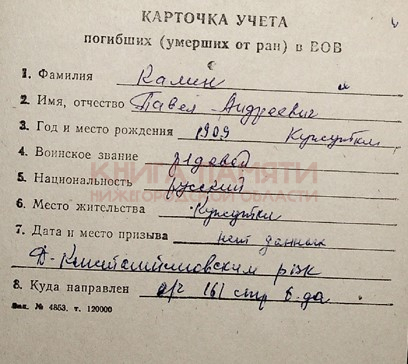 КАРТОЧКА УЧЕТА
погибших (умерших от ран) в ВОВ
1. Фамилия Калин
2. Имя, отчество Павел Андреевич
3. Год и место рождения 1909 Кужутки
4. Воинское звание рядовой
КНИГА ПАМЯТИ
5. Национальность русский
НИЖЕГОРОДСКОЙ ОБЛАСТИ
6. Место жительства Кужутки
7. Дата и место призыва нет данных
Д-Константиновским рвк
8. Куда направлен в/ч 161 стр
Зак. № 4853. т. 120000